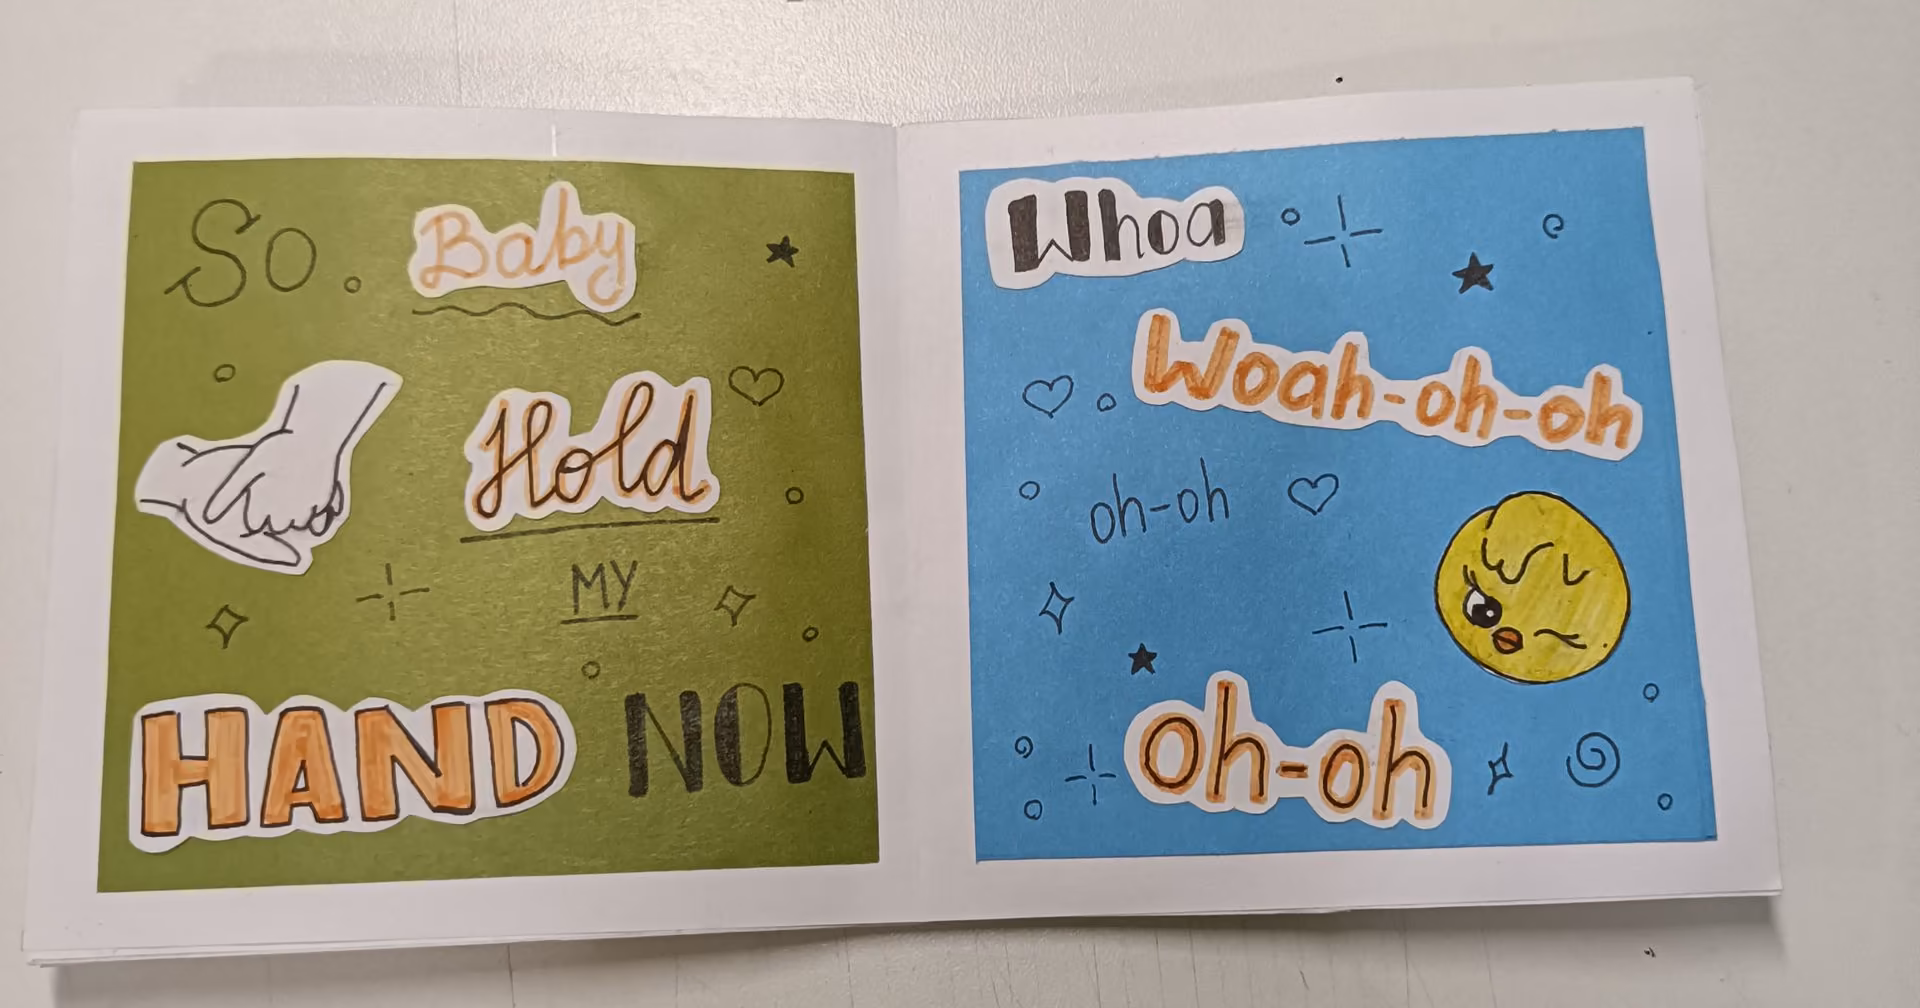 So. Baby
Hold
MY
HAND NOW
Whoa
Woah-oh-oh
oh-oh
oh-oh